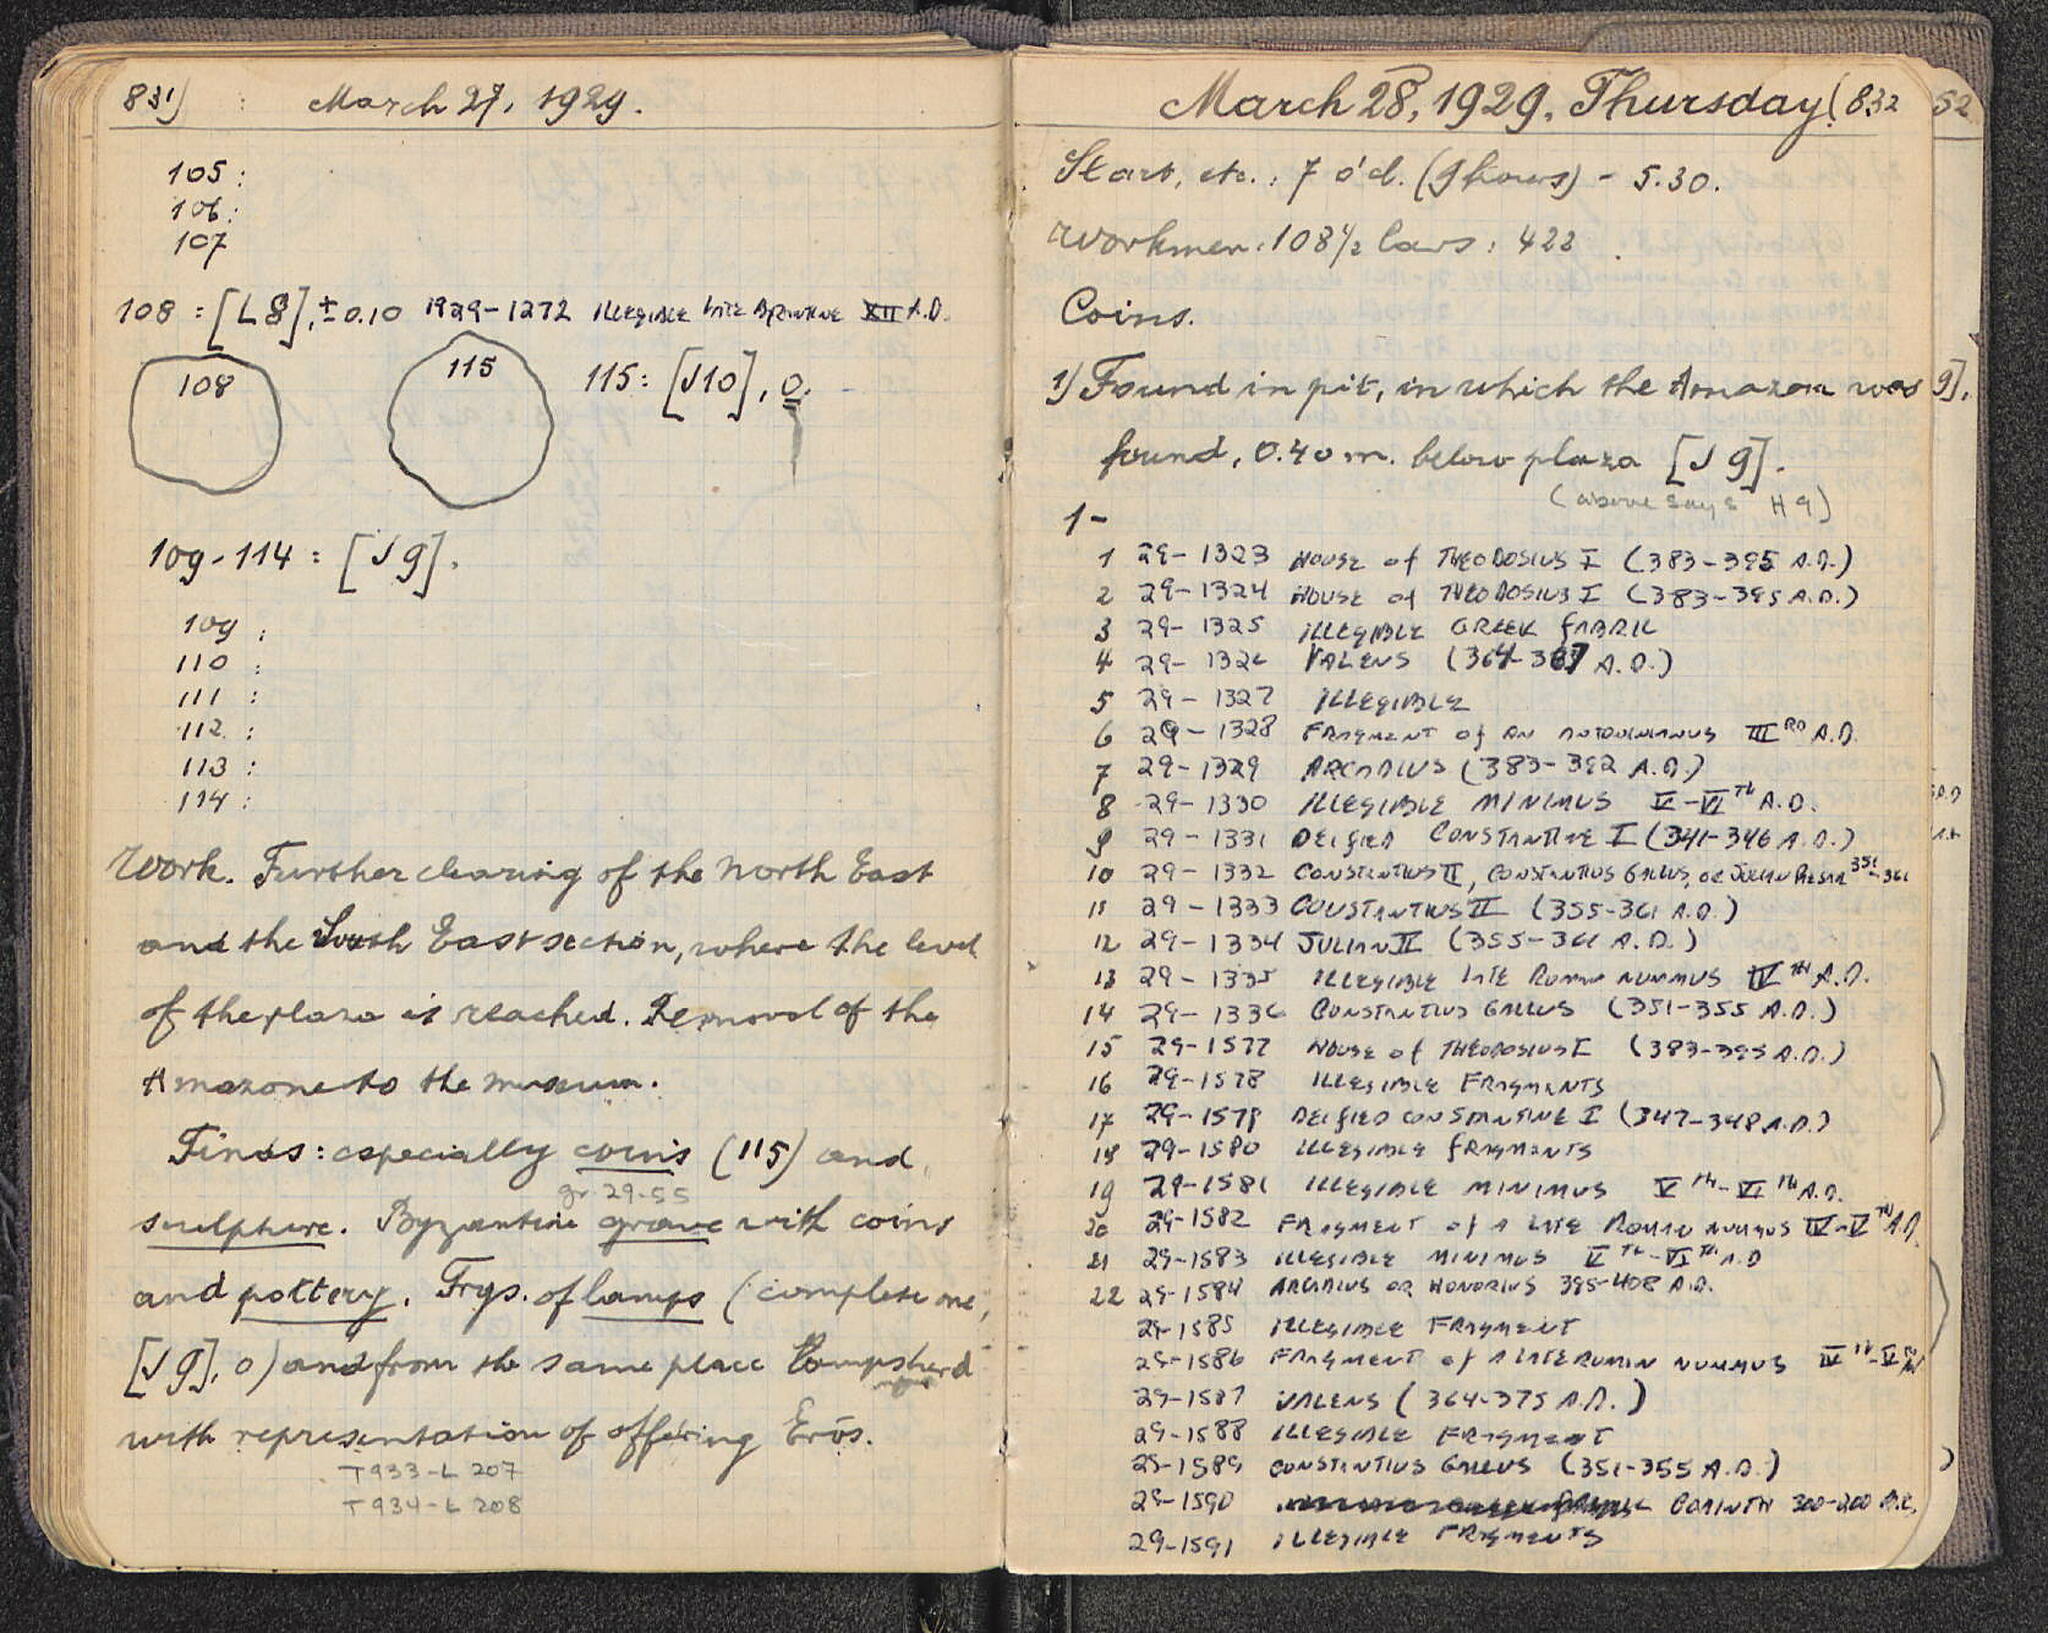 831)    :    March 27, 1929.
105 :
106 :
107
108 : [L 8], ± 0.10 1929-1272 ILLEGIBLE LATE BYZANTINE XII A.D.
108
115
115 : [J10], 0.
109-114 : [J9].
109 :
110 :
111 :
112 :
113 :
114 :
Work. Further clearing of the North East
and the South East section, where the level
of the plaza is reached. Removal of the
Amazone to the museum.
Finds: especially coins (115) and
gr. 29-55
sculpture. Byzantine grave with coins
and pottery. Frgs. of lamps (complete one,
[J9], 0) and from the same place Lampsherd
with representation of offering Erōs.
T933-L 207
T934-L 208
March 28, 1929, Thursday (832
Start, etc.: 7 o'cl. (9 hours) - 5.30.
Workmen: 108 1/2 Cars: 422
Coins.
1) Found in pit, in which the Amazon was
found, 0.40 m. below plaza [J9].
(above says H9)
1-
1 29-1323 HOUSE of THEODOSIUS I (383-395 A.D.)
2 29-1324 HOUSE of THEODOSIUS I (383-395 A.D.)
3 29-1325 ILLEGIBLE GREEK FABRIC
4 29-1326 VALENS (364-367 A.D.)
5 29-1327 ILLEGIBLE
6 29-1328 FRAGMENT of AN ANTONINIANUS III RD A.D.
7 29-1329 ARCADIUS (383-392 A.D.)
8 29-1330 ILLEGIBLE MINIMUS V-VI TH A.D.
9 29-1331 DEIFIED CONSTANTINE I (341-346 A.D.)
10 29-1332 CONSTANTIUS II, CONSTANTIUS GALLUS, OR JULIAN CAESAR 351-361
11 29-1333 CONSTANTIUS II (355-361 A.D.)
12 29-1334 JULIAN II (355-361 A.D.)
13 29-1335 ILLEGIBLE LATE ROMAN NUMMUS IV TH A.D.
14 29-1336 CONSTANTIUS GALLUS (351-355 A.D.)
15 29-1577 HOUSE of THEODOSIUS I (383-395 A.D.)
16 29-1578 ILLEGIBLE FRAGMENTS
17 29-1579 DEIFIED CONSTANTINE I (347-348 A.D.)
18 29-1580 ILLEGIBLE FRAGMENTS
19 29-1581 ILLEGIBLE MINIMUS V TH-VI TH A.D.
20 29-1582 FRAGMENT of A LATE ROMAN NUMMUS IV-V TH A.D.
21 29-1583 ILLEGIBLE MINIMUS V TH-VI TH A.D
22 29-1584 ARCADIUS OR HONORIUS 395-408 A.D.
29-1585 ILLEGIBLE FRAGMENT
29-1586 FRAGMENT of A LATE ROMAN NUMMUS IV TH-V TH
29-1587 VALENS (364-375 A.D.)
29-1588 ILLEGIBLE FRAGMENT
29-1589 CONSTANTIUS GALLUS (351-355 A.D.)
29-1590 CORINTH 300-200 B.C.
29-1591 ILLEGIBLE FRAGMENTS
52
9].